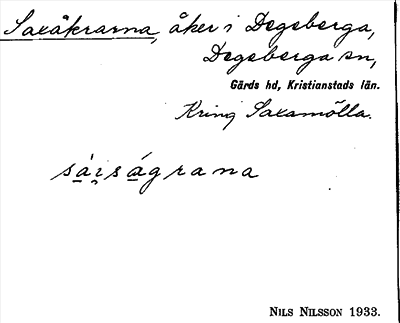 Saxåkrarna, åker i Degeberga,
Degeberga sn,
Gärds hd, Kristianstads län.
Kring Saxamölla.
sa̱i̯sa̱grana
NILS NILSSON 1933.